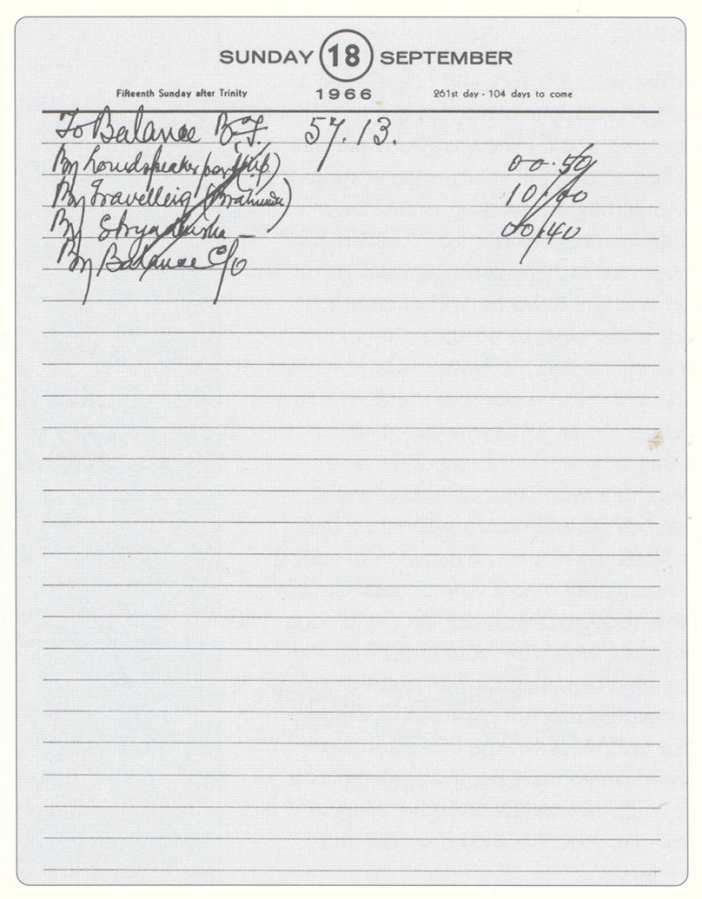 SUNDAY 18 SEPTEMBER
Fifteenth Sunday after Trinity 1966 261st day - 104 days to come
To Balance B.F. 57.13.
By Loudspeaker (tip) 00.50
By Travelling 10/00
By 00.40
By Balance C/o